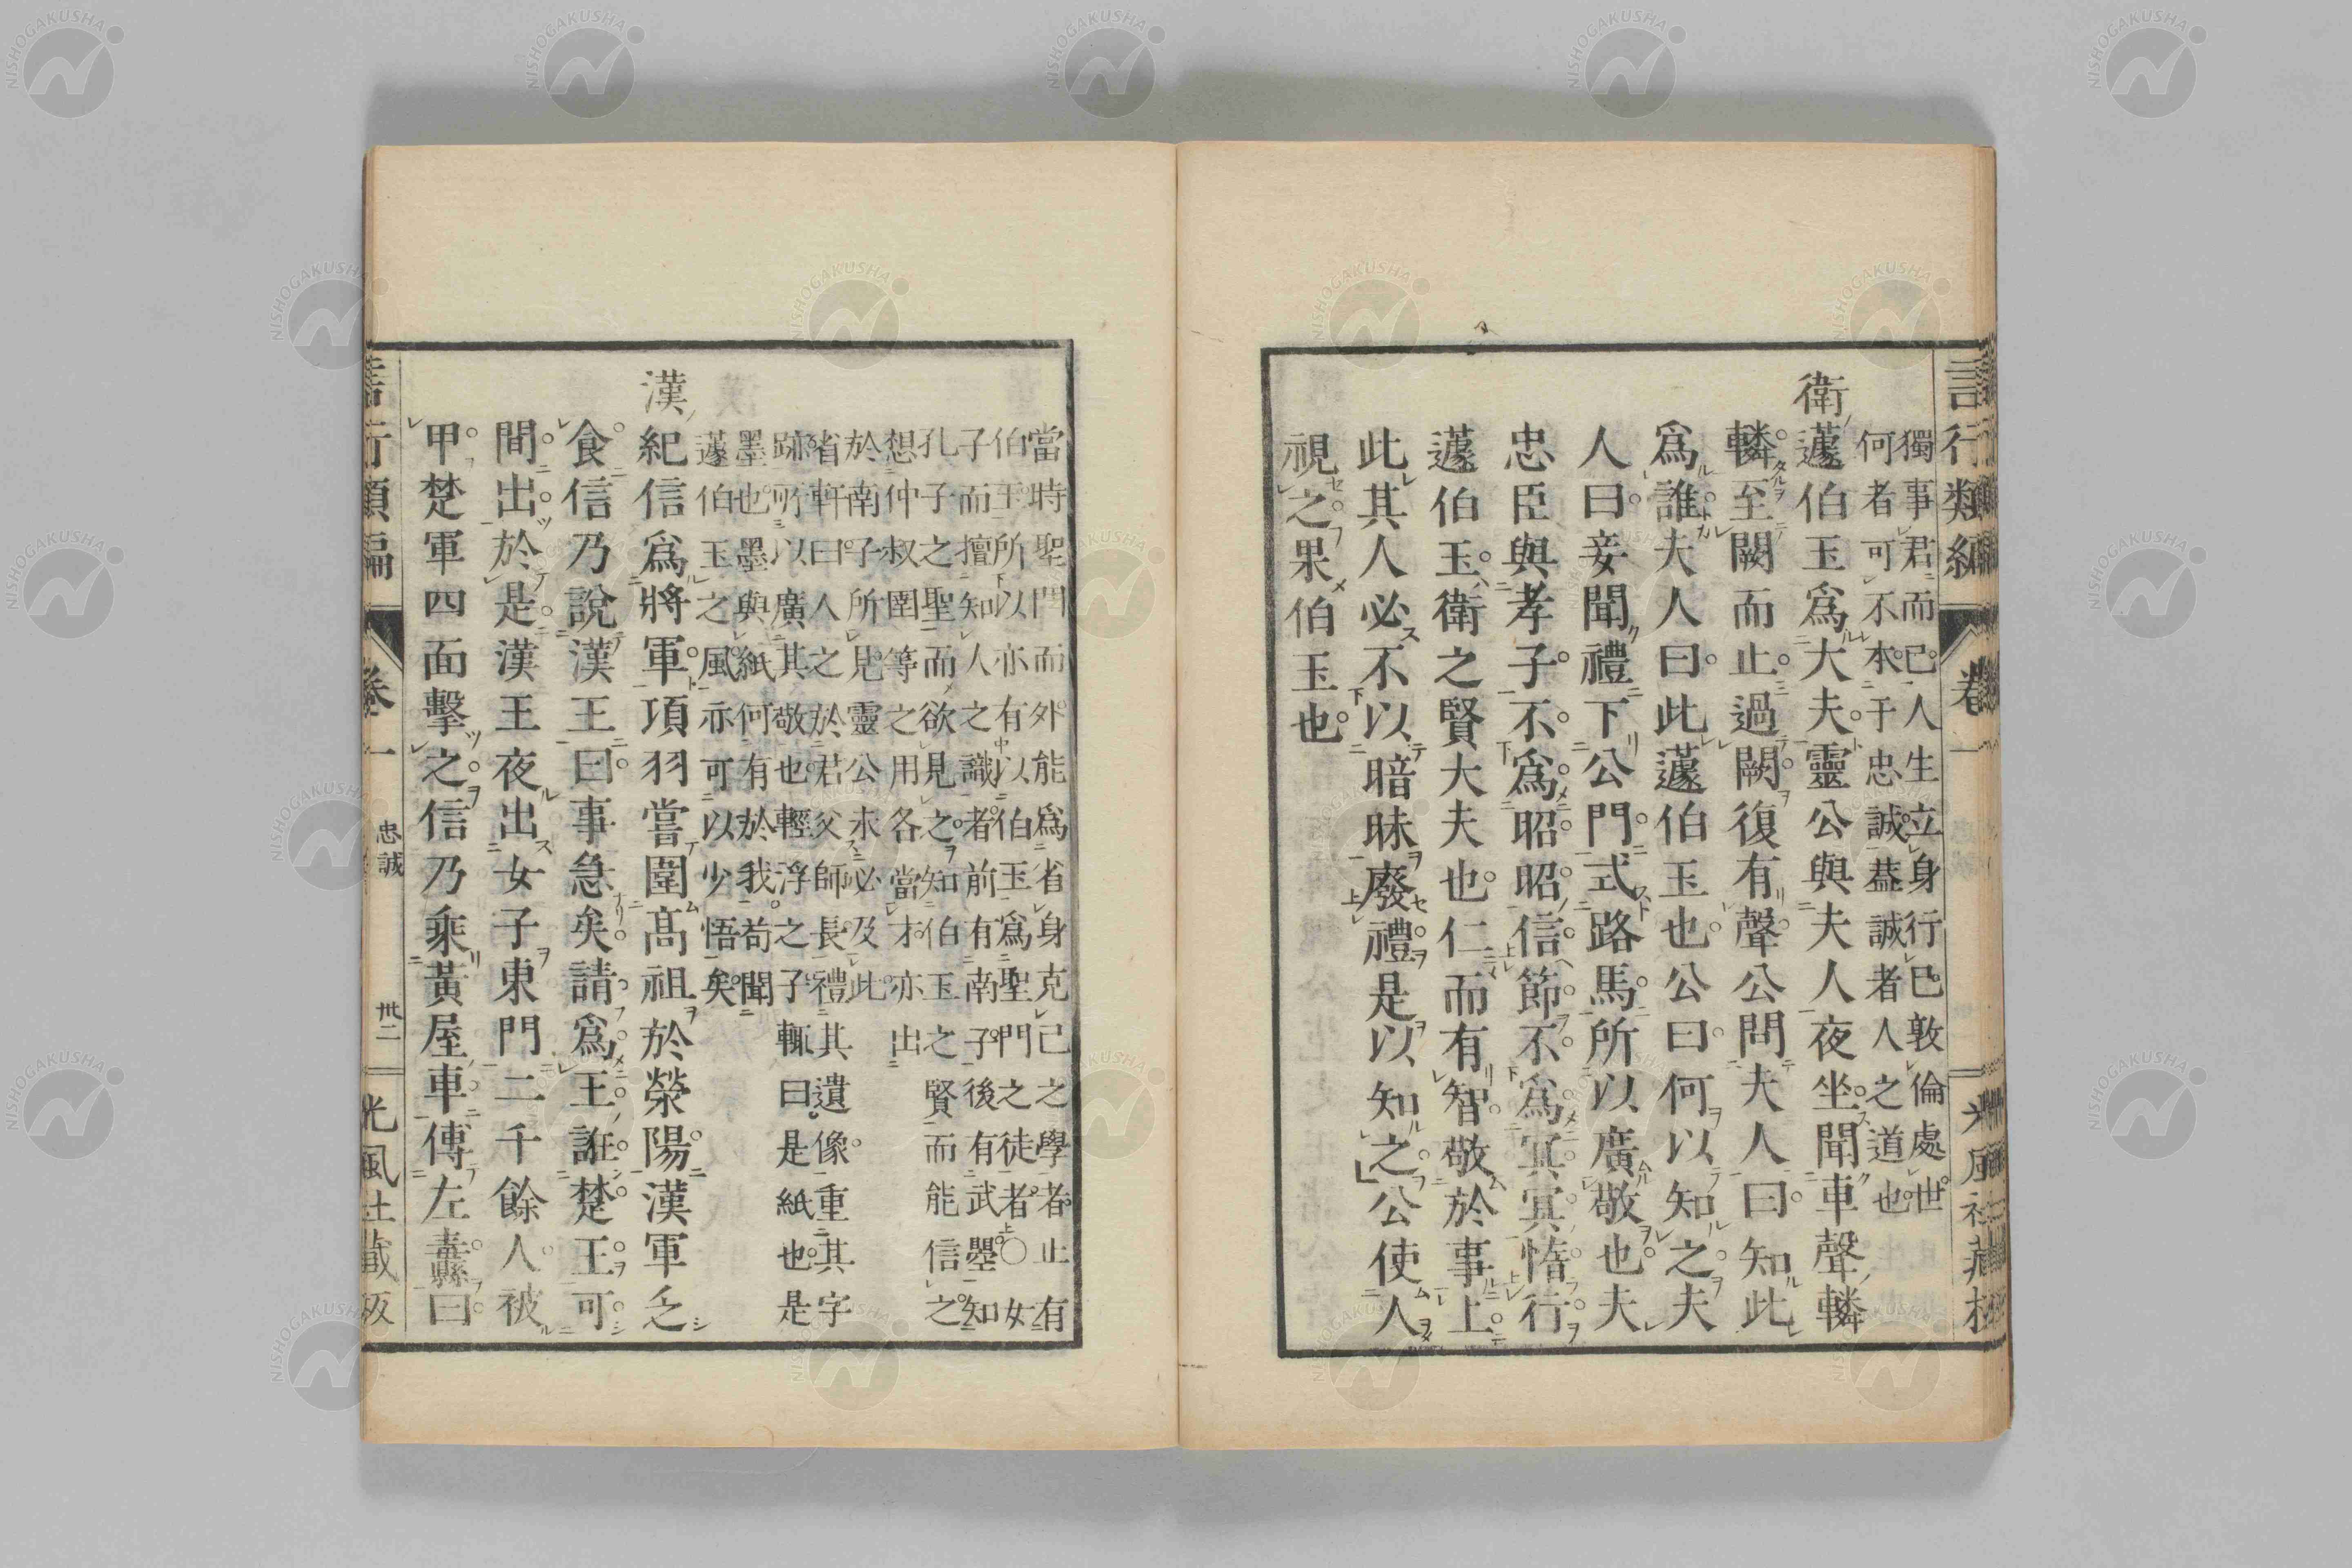 獨事君而已人生立身行已敦倫處世
何者可不本于忠誠葢誠者人之道也
衛蘧伯玉爲大夫靈公與夫人夜坐聞車聲轔
轔至闕而止過闕復有聲公問夫人曰知此
爲誰夫人曰此蘧伯玉也公曰何以知之夫
人曰妾聞禮下公門式路馬所以廣敬也夫
忠臣與孝子不爲昭昭信節不爲冥冥惰行
蘧伯玉衛之賢大夫也仁而有智敬於事上
此其人必不以暗昧廢禮是以知之公使人
視之果伯玉也
當時聖門而外能爲省身克己之學者止有
伯玉所以亦有以伯玉爲聖門之徒者○女
子而擅知人之識者前有南子後有武曌知
孔子之聖而欲見之知伯玉之賢而能信之
想仲叔圉等之用各當才亦出
於南子所見靈公未必及此
省軒曰人之於君父師長禮其遺像重其字
跡所以廣其敬也輕浮之子輒曰是紙也是
墨也墨與紙何有於我苟聞
蘧伯玉之風亦可以少悟矣
漢紀信爲將軍項羽嘗圍髙祖於滎陽漢軍乏
食信乃說漢王曰事急矣請爲王誑楚王可
間出於是漢王夜出女子東門二千餘人被
甲楚軍四面擊之信乃乘黃屋車傳左纛曰
言行類編 卷一 忠誠 卅二 光風社藏板